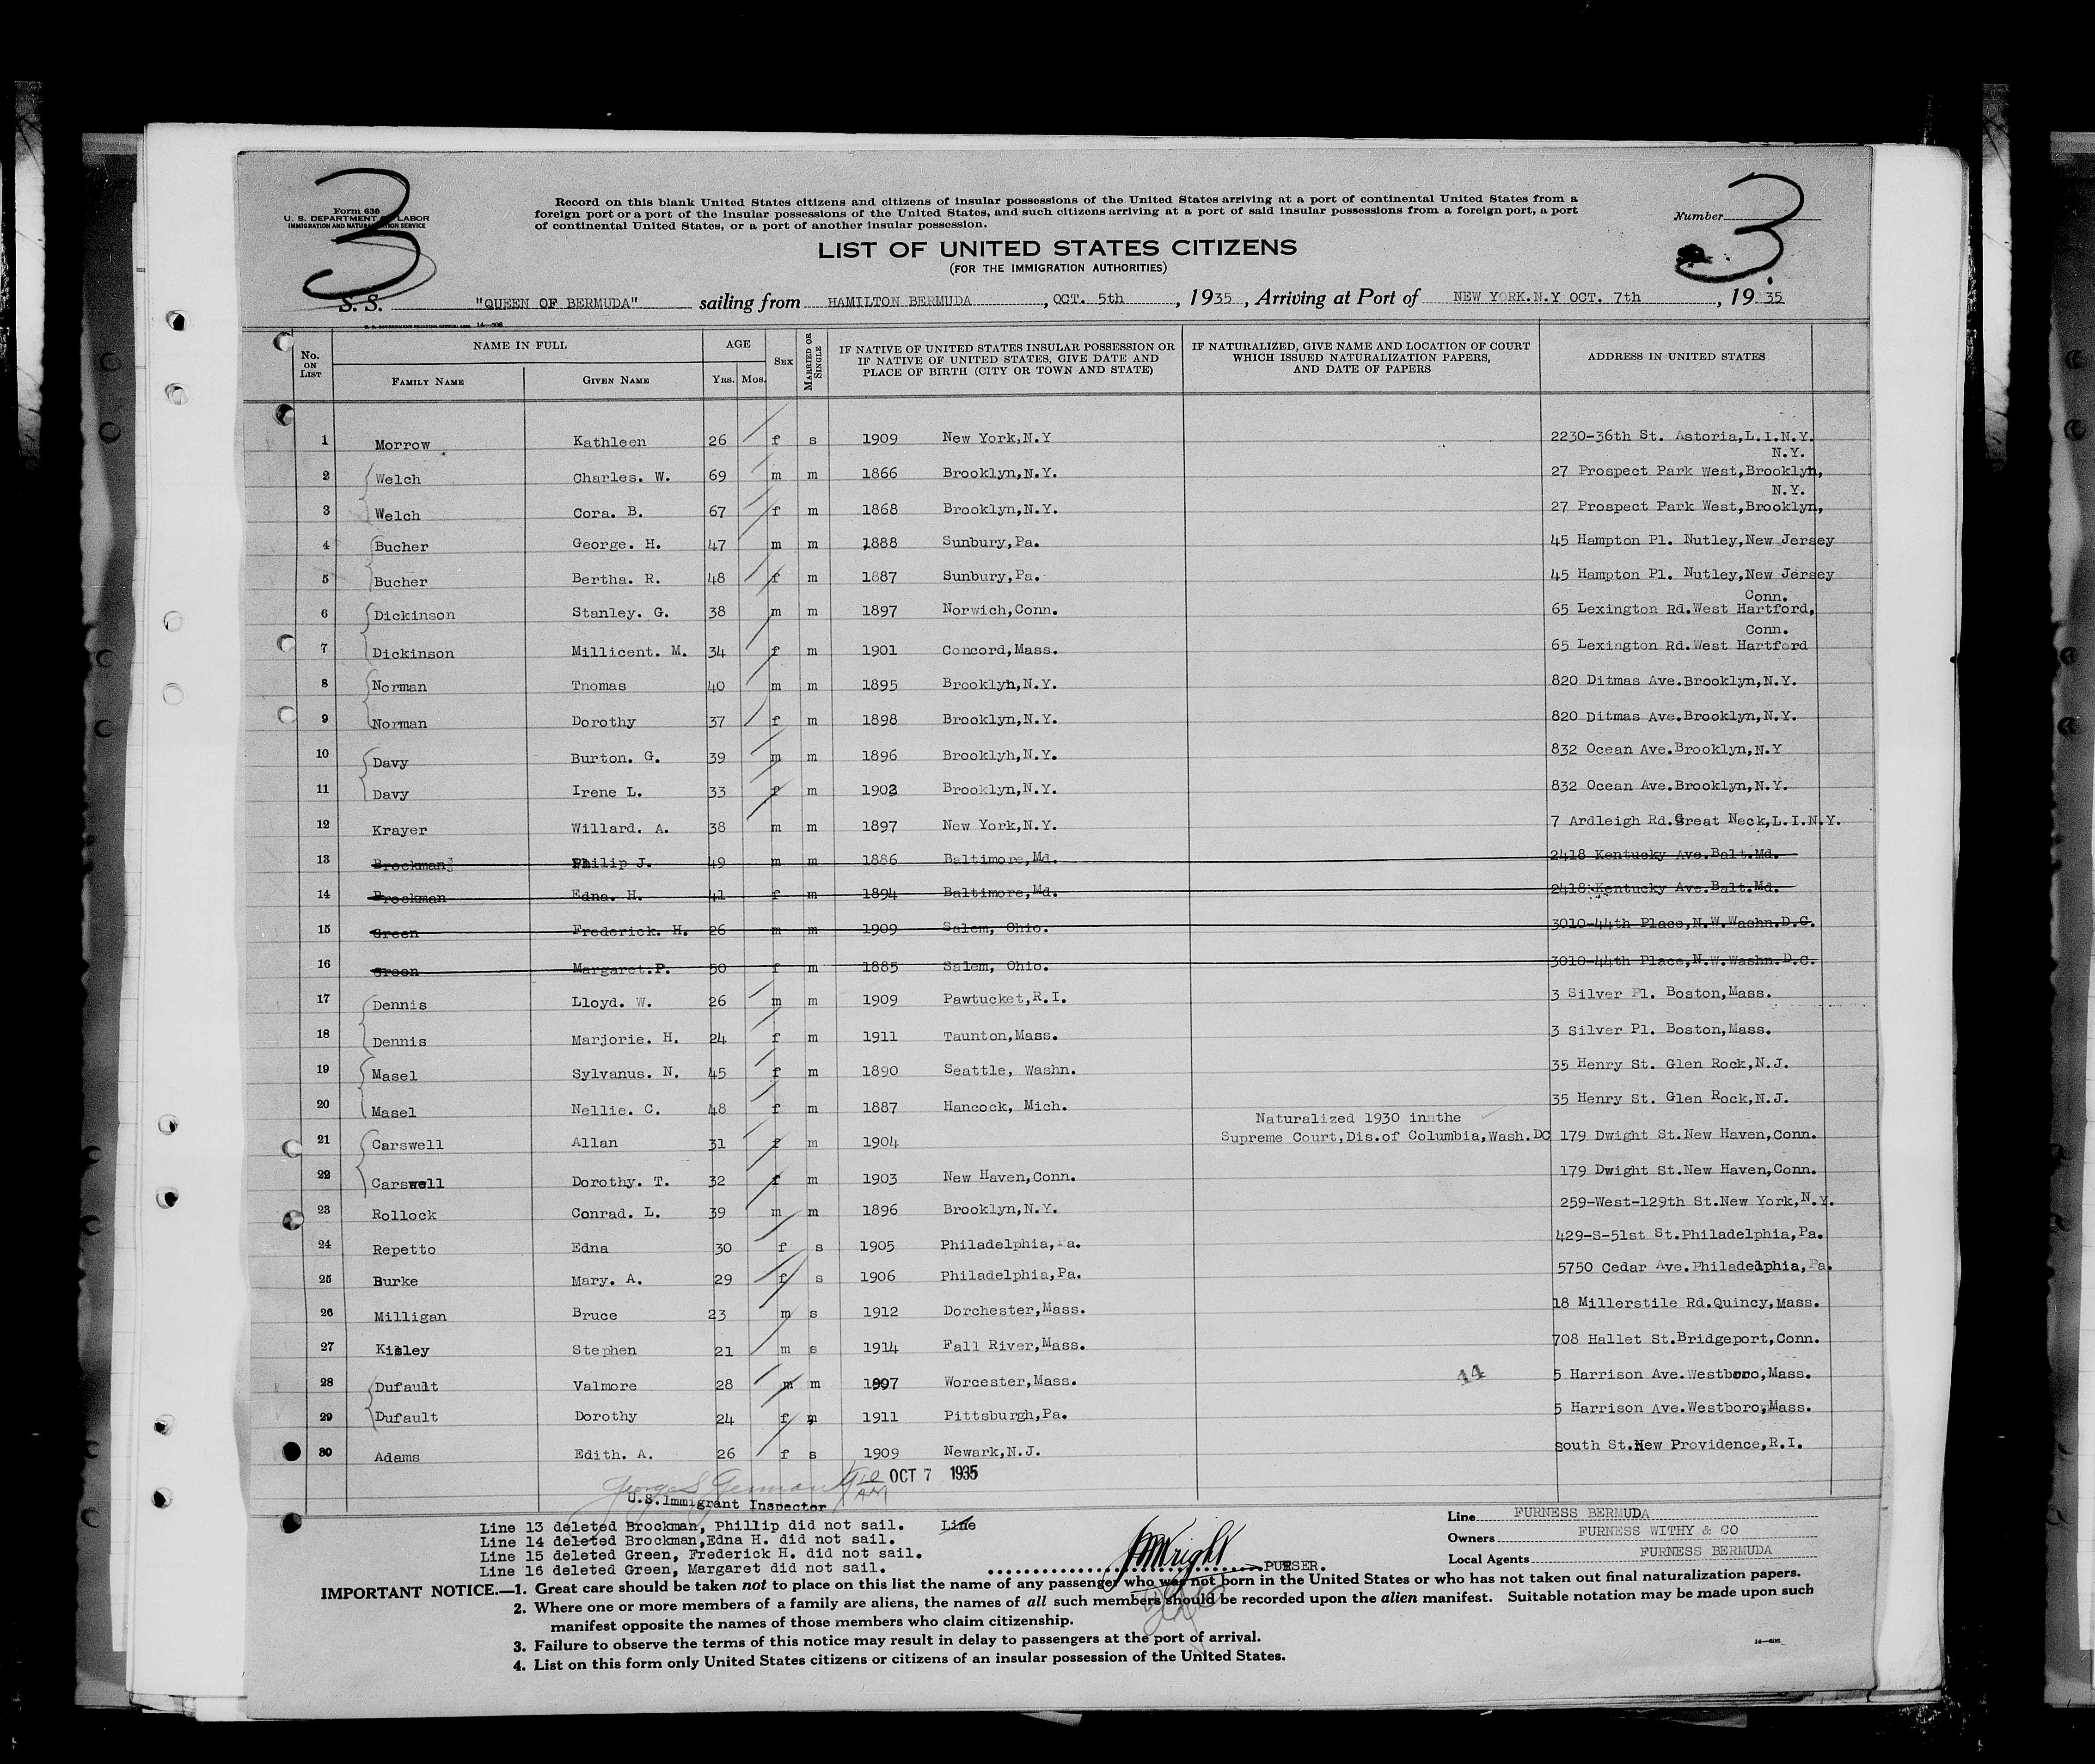 3
3
Form 630
U. S. DEPARTMENT OF LABOR
IMMIGRATION AND NATURALIZATION SERVICE
Record on this blank United States citizens and citizens of insular possessions of the United States arriving at a port of continental United States from a
foreign port or a port of the insular possessions of the United States, and such citizens arriving at a port of said insular possessions from a foreign port, a port
of continental United States, or a port of another insular possession.
Number
LIST OF UNITED STATES CITIZENS
(FOR THE IMMIGRATION AUTHORITIES)
S. S. "QUEEN OF BERMUDA" sailing from HAMILTON BERMUDA , OCT. 5th , 1935 , Arriving at Port of NEW YORK.N.Y OCT. 7th , 19 35
No. ON LIST NAME IN FULL FAMILY NAME GIVEN NAME AGE YRS. MOS. SEX MARRIED OR SINGLE IF NATIVE OF UNITED STATES INSULAR POSSESSION OR IF NATIVE OF UNITED STATES, GIVE DATE AND PLACE OF BIRTH (CITY OR TOWN AND STATE) IF NATURALIZED, GIVE NAME AND LOCATION OF COURT WHICH ISSUED NATURALIZATION PAPERS, AND DATE OF PAPERS ADDRESS IN UNITED STATES
1 Morrow Kathleen 26 f s 1909 New York,N.Y 2230-36th St. Astoria,L.I.N.Y.
N.Y.
2 Welch Charles. W. 69 m m 1866 Brooklyn,N.Y. 27 Prospect Park West,Brooklyn,
N.Y.
3 Welch Cora. B. 67 f m 1868 Brooklyn,N.Y. 27 Prospect Park West,Brooklyn,
4 Bucher George. H. 47 m m 1888 Sunbury,Pa. 45 Hampton Pl. Nutley,New Jersey
5 Bucher Bertha. R. 48 f m 1887 Sunbury,Pa. 45 Hampton Pl. Nutley,New Jersey
Conn.
6 Dickinson Stanley. G. 38 m m 1897 Norwich,Conn. 65 Lexington Rd.West Hartford,
Conn.
7 Dickinson Millicent. M. 34 f m 1901 Concord,Mass. 65 Lexington Rd.West Hartford
8 Norman Tnomas 40 m m 1895 Brooklyn,N.Y. 820 Ditmas Ave.Brooklyn,N.Y.
9 Norman Dorothy 37 f m 1898 Brooklyn,N.Y. 820 Ditmas Ave.Brooklyn,N.Y.
10 Davy Burton. G. 39 m m 1896 Brooklyh,N.Y. 832 Ocean Ave.Brooklyn,N.Y
11 Davy Irene L. 33 f m 1902 Brooklyn,N.Y. 832 Ocean Ave.Brooklyn,N.Y.
12 Krayer Willard. A. 38 m m 1897 New York,N.Y. 7 Ardleigh Rd.Great Neck,L.I.N.Y.
13 Brockman Philip J. 49 m m 1886 Baltimore,Md. 2418 Kentucky Ave.Balt.Md.
14 Brockman Edna. H. 41 f m 1894 Baltimore,Md. 2418 Kentucky Ave.Balt.Md.
15 Green Frederick. H. 26 m m 1909 Salem, Ohio. 3010-44th Place,N.W.Washn.D.C.
16 Green Margaret.P. 50 f m 1885 Salem, Ohio. 3010-44th Place,N.W.Washn.D.C.
17 Dennis Lloyd. W. 26 m m 1909 Pawtucket,R.I. 3 Silver Pl. Boston,Mass.
18 Dennis Marjorie. H. 24 f m 1911 Taunton,Mass. 3 Silver Pl. Boston,Mass.
19 Masel Sylvanus. N. 45 f m 1890 Seattle, Washn. 35 Henry St. Glen Rock,N.J.
20 Masel Nellie. C. 48 f m 1887 Hancock, Mich. 35 Henry St. Glen Rock,N.J.
Naturalized 1930 in the
21 Carswell Allan 31 f m 1904 Supreme Court,Dis.of Columbia,Wash.DC 179 Dwight St.New Haven,Conn.
22 Carswell Dorothy. T. 32 f m 1903 New Haven,Conn. 179 Dwight St.New Haven,Conn.
23 Rollock Conrad. L. 39 m m 1896 Brooklyn,N.Y. 259-West-129th St.New York,N.Y.
24 Repetto Edna 30 f s 1905 Philadelphia,Pa. 429-S-51st St.Philadelphia,Pa.
25 Burke Mary. A. 29 f s 1906 Philadelphia,Pa. 5750 Cedar Ave.Philadelphia,Pa.
26 Milligan Bruce 23 m s 1912 Dorchester,Mass. 18 Millerstile Rd.Quincy,Mass.
27 Stephen 21 m s 1914 Fall River,Mass. 708 Hallet St.Bridgeport,Conn.
28 Dufault Valmore 28 m m 1907 Worcester,Mass. 44 5 Harrison Ave.Westboro,Mass.
29 Dufault Dorothy 24 f m 1911 Pittsburgh,Pa. 5 Harrison Ave.Westboro,Mass.
30 Adams Edith. A. 26 f s 1909 Newark,N.J. South St.New Providence,R.I.
George S. OCT 7 1935
U.S.Immigrant Inspector
Line 13 deleted Brockman, Phillip did not sail. Line
Line 14 deleted Brockman,Edna H. did not sail.
Line 15 deleted Green, Frederick H. did not sail.
Line 16 deleted Green, Margaret did not sail.
Wright PURSER.
Line FURNESS BERMUDA
Owners FURNESS WITHY & CO
Local Agents FURNESS BERMUDA
IMPORTANT NOTICE.—1. Great care should be taken not to place on this list the name of any passenger who was not born in the United States or who has not taken out final naturalization papers.
2. Where one or more members of a family are aliens, the names of all such members should be recorded upon the alien manifest. Suitable notation may be made upon such
manifest opposite the names of those members who claim citizenship.
3. Failure to observe the terms of this notice may result in delay to passengers at the port of arrival.
4. List on this form only United States citizens or citizens of an insular possession of the United States.